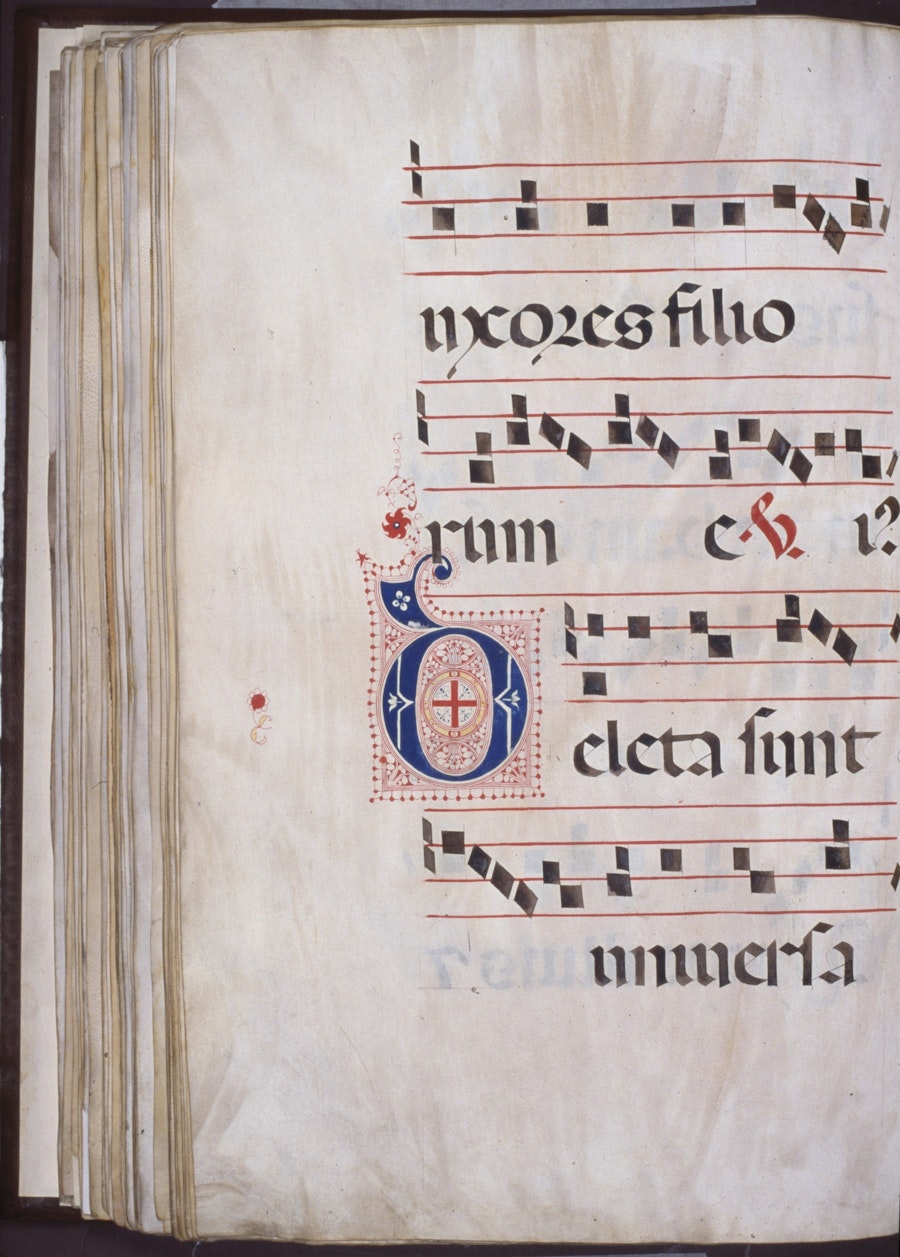 uxores filio
rum e ℣.
Deleta sunt
uniuersa